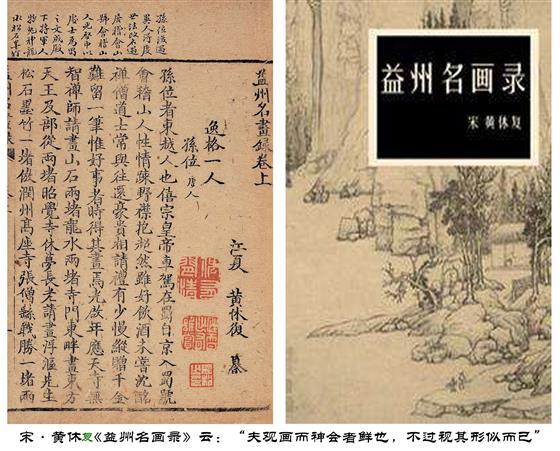 孫位後遇
異人得度
世法改名
號會稽山
處士為蜀
之文成殿
下將軍人
物鬼神龍
水松石墨竹
益州名畫錄卷上
江夏 黃休復 纂
逸格一人
孫位 唐人
孫位者東越人也僖宗皇帝車駕在蜀自京入蜀號
會稽山人性情踈野襟抱超然雖好飲酒未嘗沈酩
禪僧道士常與往還豪貴相請禮有少慢縱贈千金
難留一筆惟好事者時得其畫焉光啟年應天寺無
智禪師請畫山石兩堵龍水兩堵寺門東畔畫東方
天王及部從兩堵昭覺寺休夢長老請畫浮漚先生
松石墨竹一堵倣潤州高座寺張僧繇戰勝一堵兩
益州名画录
宋 黄休复
宋·黄休复《益州名画录》云：“夫观画而神会者鲜也，不过视其形似而已”